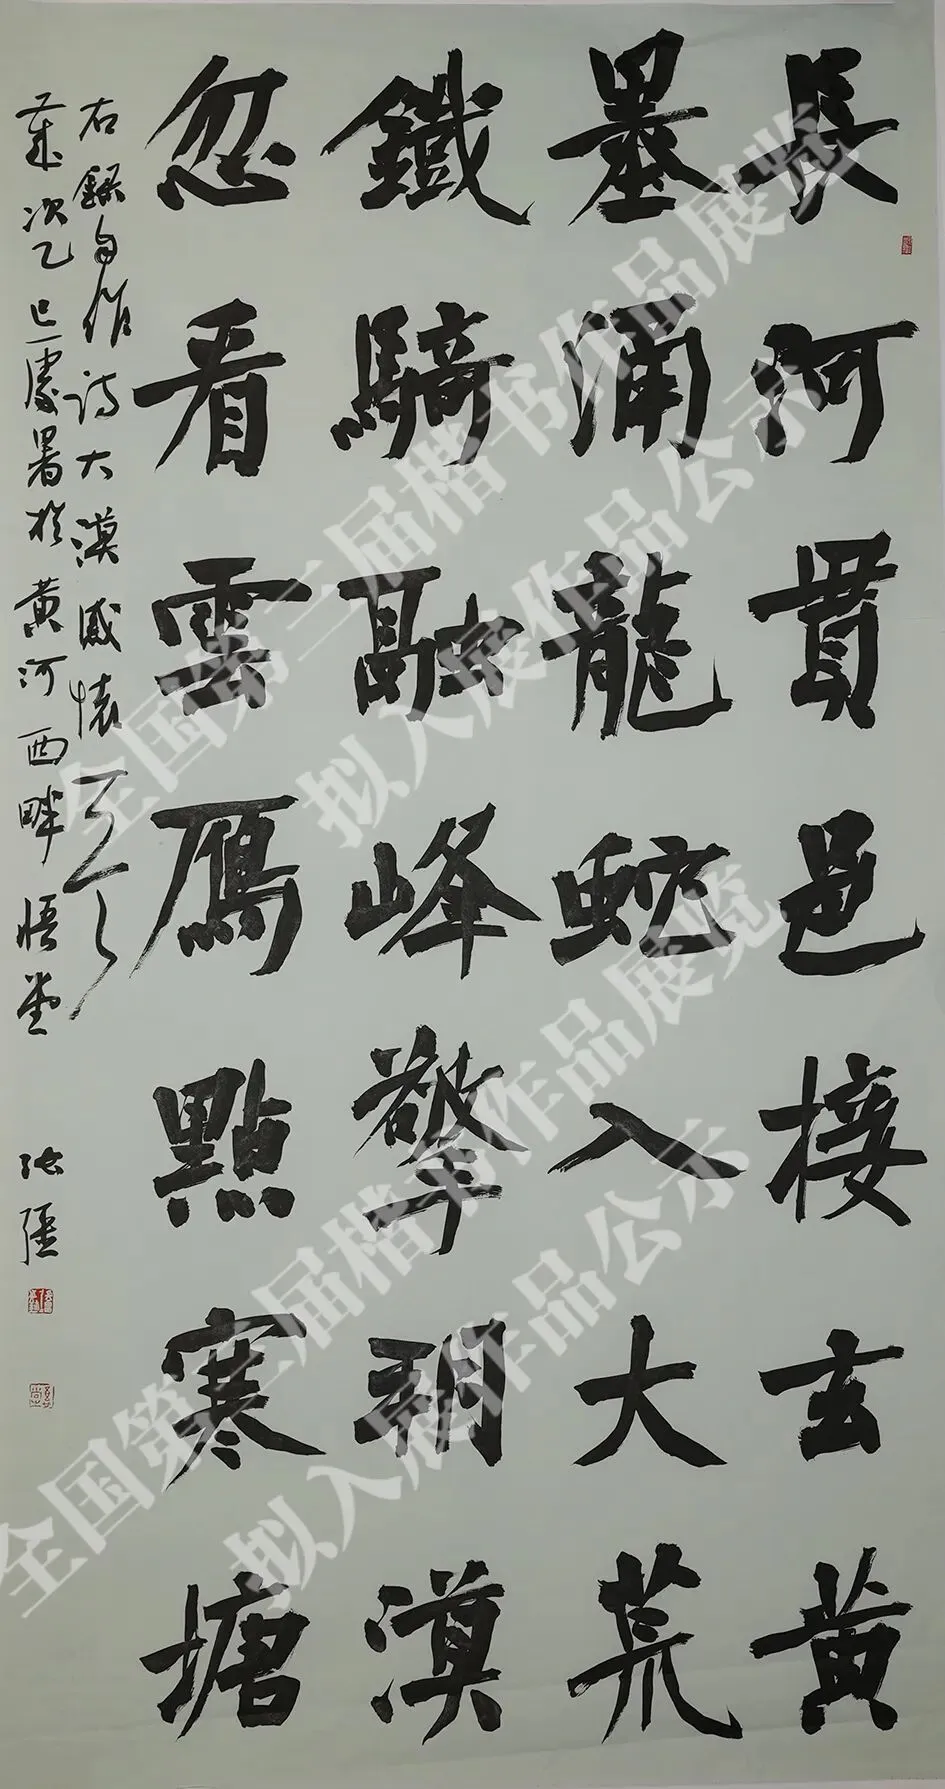 長河貫邑接玄黃
墨涌龍蛇入大荒
鐵騎融峰擎朔漠
忽看雲雁點寒塘
右錄自作詩大漠感懷
歲次乙巳處暑於黃河西畔悟堂
全国第三届楷书作品展览
拟入展作品公示
全国第三届楷书作品展览
拟入展作品公示